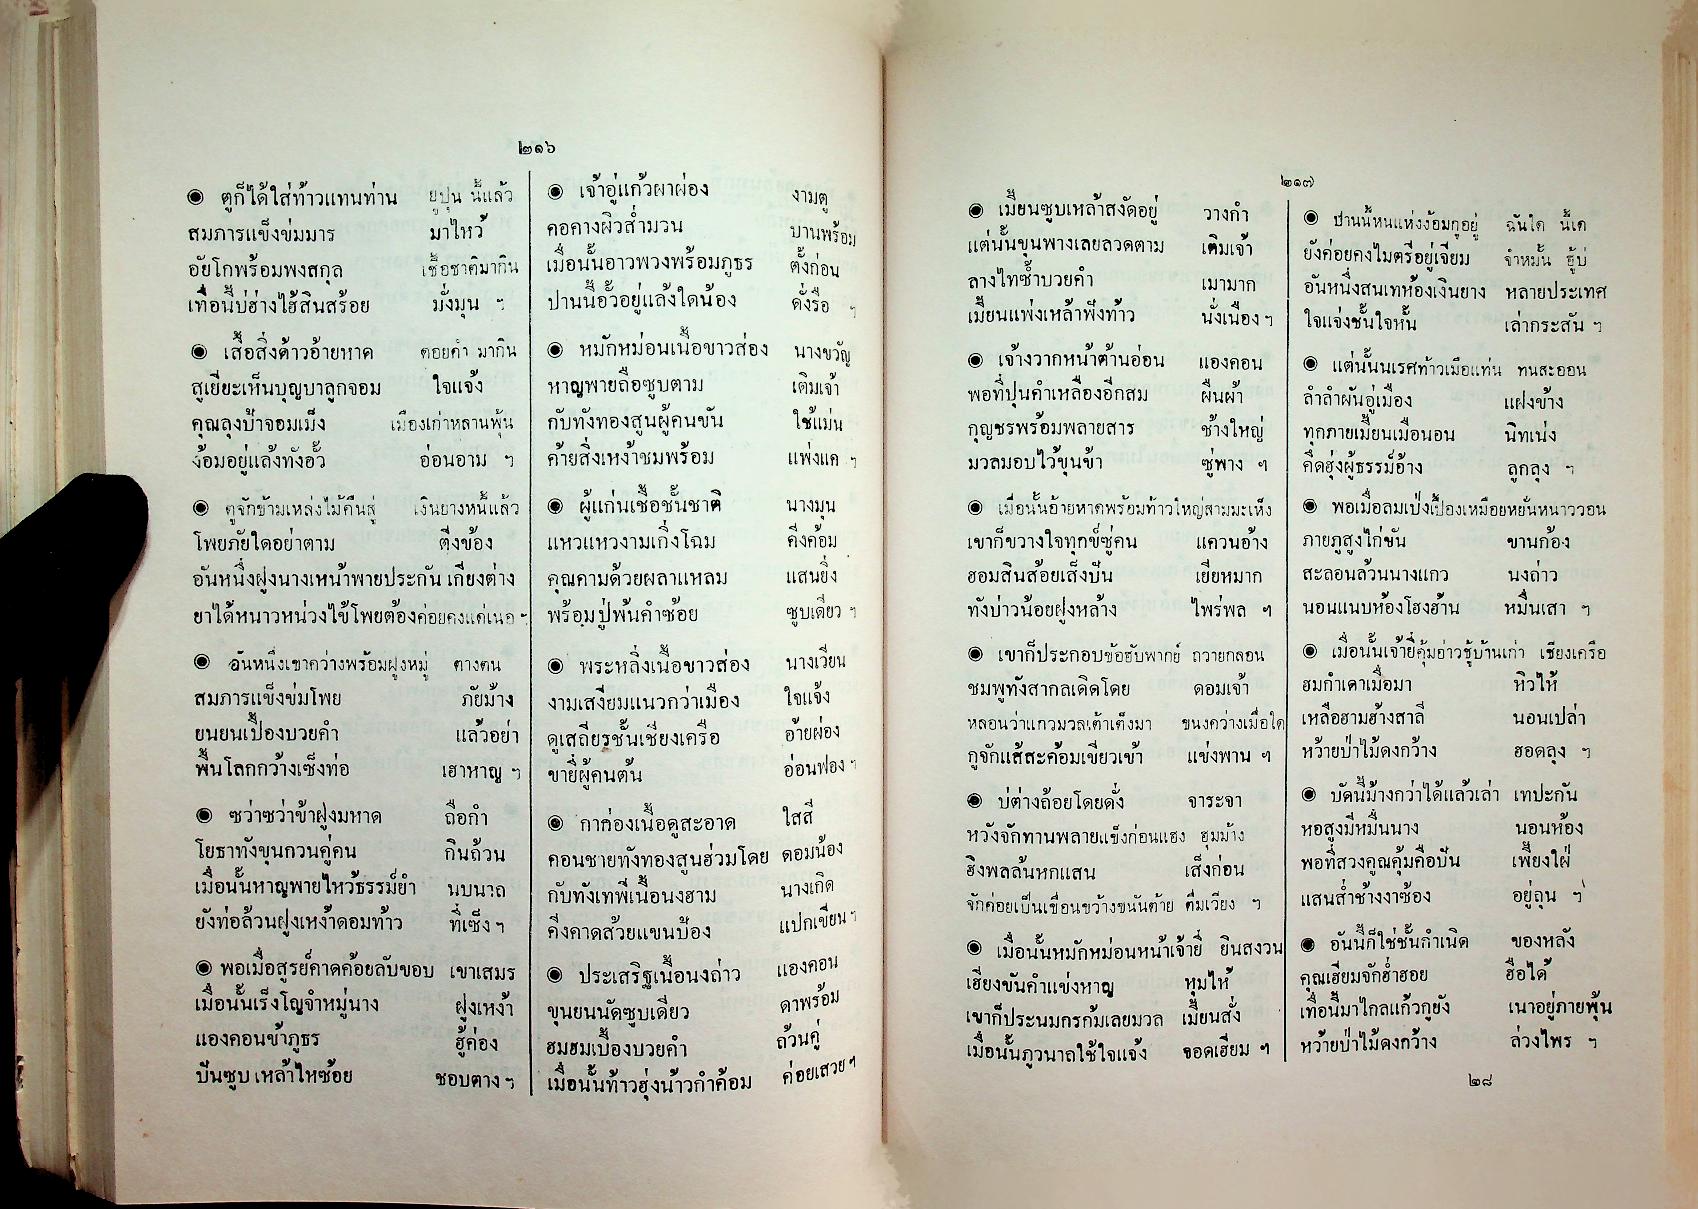 ๒๑๖
◉ ตูก็ได้ใส่ท้าวแทนท่าน ยูปุน นี้แล้ว
สมภารแข็งข่มมาร มาไหว้
อัยโกพร้อมพงสกุล เชื้อชาติมากิน
เทื่อนี้บ่ฮ่างไฮ้สินสร้อย มั่งมุน ฯ
◉ เสื้อสิ่งด้าวอ้ายหาด คอยคำ มากิน
สูเยียะเห็นบุญบาลูกจอม ใจแจ้ง
คุณลุงป้าจอมเม็ง เมืองเก่าหลานพุ้น
ง้อมอยู่แล้งทังอั้ว อ่อนอาม ฯ
◉ ตูจักข้ามเหล่งไม้คืนสู่ เงินยางหนี้แล้ว
โพยภัยใดอย่าตาม ตึงข้อง
อันหนึ่งฝูงนางเหน้าพายประกัน เกียงต่าง
ยาได้หนาวหน่วงไข้โพยต้องค่อยคงแค่เนอ ฯ
◉ อันหนึ่งเขากว่างพร้อมฝูงหมู่ ตางตน
สมภารแข็งข่มโพย ภัยม้าง
ยนยนเปื้องบวยคำ แล้วอย่า
พื้นโลกกว้างเซ็งท่อ เฮาหาญ ฯ
◉ ซว่าซว่าข้าฝูงมหาด ถือกำ
โยธาทังขุนกวนคู่คน กินถ้วน
เมื่อนั้นหาญพายไหว้ธรรม์ยำ นบนาถ
ยังท่อล้วนฝูงเหง้าดอมท้าว ที่เซ็ง ฯ
◉ พอเมื่อสูรย์คาดค้อยลับขอบ เขาเสมร
เมื่อนั้นเร็งโญจำหมู่นาง ฝูงเหง้า
แองคอนข้าภูธร ฮู้ค่อง
ปันซูบ เหล้าไหซ้อย ชอบตาง ฯ
◉ เจ้าอู่แก้วผาผ่อง งามตู
คอคางผิวส่ำมวน บานพร้อม
เมื่อนั้นอาวพวงพร้อมภูธร ตั้งก่อน
ปานนี้อั้วอยู่แล้งใดน้อง ดั่งรือ ฯ
◉ หมักหม่อนเนื้อขาวส่อง นางขวัญ
หาญพายถือซูบตาม เดิมเจ้า
กับทังทองสูนผู้คนขัน ใช้แม่น
ค้ายสิ่งเหง้าชมพร้อม แพ่งแค ฯ
◉ ผู้แก่นเชื้อชั้นชาติ นางมุน
แหวแหวงามเกิ่งโฉม คีงค้อม
คุณคามด้วยผลาแหลม แสนยิ่ง
พร้อมปู่พ้นคำซ้อย ซูบเดียว ฯ
◉ พระหลิ่งเนื้อขาวส่อง นางเวียน
งามเสงี่ยมแนวกว่าเมือง ใจแจ้ง
ดูเสถียรชั้นเชียงเครือ อ้ายผ่อง
ขายี่ผู้คนต้น อ่อนฟอง ฯ
◉ กาก่องเนื้อดูสะอาด ใสสี
คอนชายทังทองสูนฮ่วมโดย ดอมน้อง
กับทังเทพีเนื้อนงฮาม นางเกิด
คีงคาดส้วยแขนป้อง แปกเขียน ฯ
◉ ประเสริฐเนื้อนงถ่าว แองคอน
ขุนยนนัดซูบเดียว ดาพร้อม
ฮมฮมเบื้องบวยคำ ถ้วนคู่
เมื่อนั้นท้าวฮุ่งน้าวกำค้อม ค่อยเสวย ฯ
๒๑๗
◉ เมี้ยนซูบเหล้าสงัดอยู่ วางกำ
แต่นั้นขุนพางเลยลวดตาม เดิมเจ้า
ลางไทซ้ำบวยคำ เมามาก
เมี้ยนแพ่งเหล้าพึงท้าว นั่งเนือง ฯ
◉ เจ้างวากหน้าต้านอ่อน แองคอน
พอที่ปุนคำเหลืองอีกสม ผืนผ้า
กุญชรพร้อมพลายสาร ช้างใหญ่
มวลมอบไว้ขุนข้า ซู่พาง ฯ
◉ เมื่อนั้นอ้ายหาดพร้อมท้าวใหญ่สามมะเห็ง
เขาก็ขวางใจทุกข์ซู่คน แควนอ้าง
ฮอมสินส้อยเส็งปัน เยียหมาก
ทังบ่าวน้อยฝูงหล้าง ไพร่พล ฯ
◉ เขาก็ประกอบข้อฮับพากย์ ถวายกลอน
ชมพูทังสากลเดิดโดย ดอมเจ้า
หลอนว่าแกวมวลเต้าเต็งมา ขนงคว่างเมื่อใด
กูจักแส้สะค้อมเขียวเข้า แข่งพาน ฯ
◉ บ่ต่างถ้อยโดยดั่ง จาระจา
หวังจักทานพลายแข็งก่อนแฮง ฮุมม้าง
ฮิงพลล้นหกแสน เส็งก่อน
จักค่อยเป็นเขื่อนขว้างขนันต้าย คืมเวียง ฯ
◉ เมื่อนั้นหมักหม่อนหน้าเจ้ายี่ ยินสงวน
เฮียงขันคำแข่งหาญ หุมไห้
เขาก็ประนมกรก้มเลยมวล เมี้ยนสั่ง
เมื่อนั้นภูวนาถใช้ใจแจ้ง จอดเฮียม ฯ
◉ ปานนี้หนแห่งง้อมกูอยู่ ฉันใด นี้เด
ยังค่อยคงไมตรีอยู่เจียม จำหมั้น ฮู้บ่
อันหนึ่งสนเทห้องเงินยาง หลายประเทศ
ใจแจ่งชั้นใจหั้น เล่ากระสัน ฯ
◉ แต่นั้นนเรศท้าวเมือแท่น ทนสะออน
ลำลำผันอู่เมือง แฝงข้าง
ทุกภายเมี้ยนเมือนอน นิทเน่ง
คึดฮุ่งผู้ธรรม์อ้าง ลูกลุง ฯ
◉ พอเมื่อลมเป่งเปื้องเหมือยหยั่นหนาววอน
ภายภูสูงไก่ขัน ขานก้อง
สะลอนล้วนนางแกว นงถ่าว
นอนแนบห้องโฮงฮ้าน หมื่นเสา ฯ
◉ เมื่อนั้นเจ้ายี่คุ้มอ่าวชู้บ้านเก่า เชียงเครือ
ฮมกำเดาเมื่อมา หิวไห้
เหลือฮามฮ้างสาลี นอนเปล่า
หว้ายป่าไม้ดงกว้าง ฮอดลุง ฯ
◉ บัดนี้ม้างกว่าได้แล้วเล่า เทปะกัน
หอสูงมีหมื่นนาง นอนห้อง
พอที่สวงคูณคุ้มคือปัน เพี้ยงใฝ่
แสนส่ำช้างงาซ้อง อยู่ถุน ฯ
◉ อันนี้ก็ใช่ชั้นกำเนิด ของหลัง
คุณเฮียมจักฮ่ำฮอย ฮือได้
เทื่อนี้มาไกลแก้วกูยัง เนาอยู่ภายพุ้น
หว้ายป่าไม้ดงกว้าง ล่วงไพร ฯ
๒๘